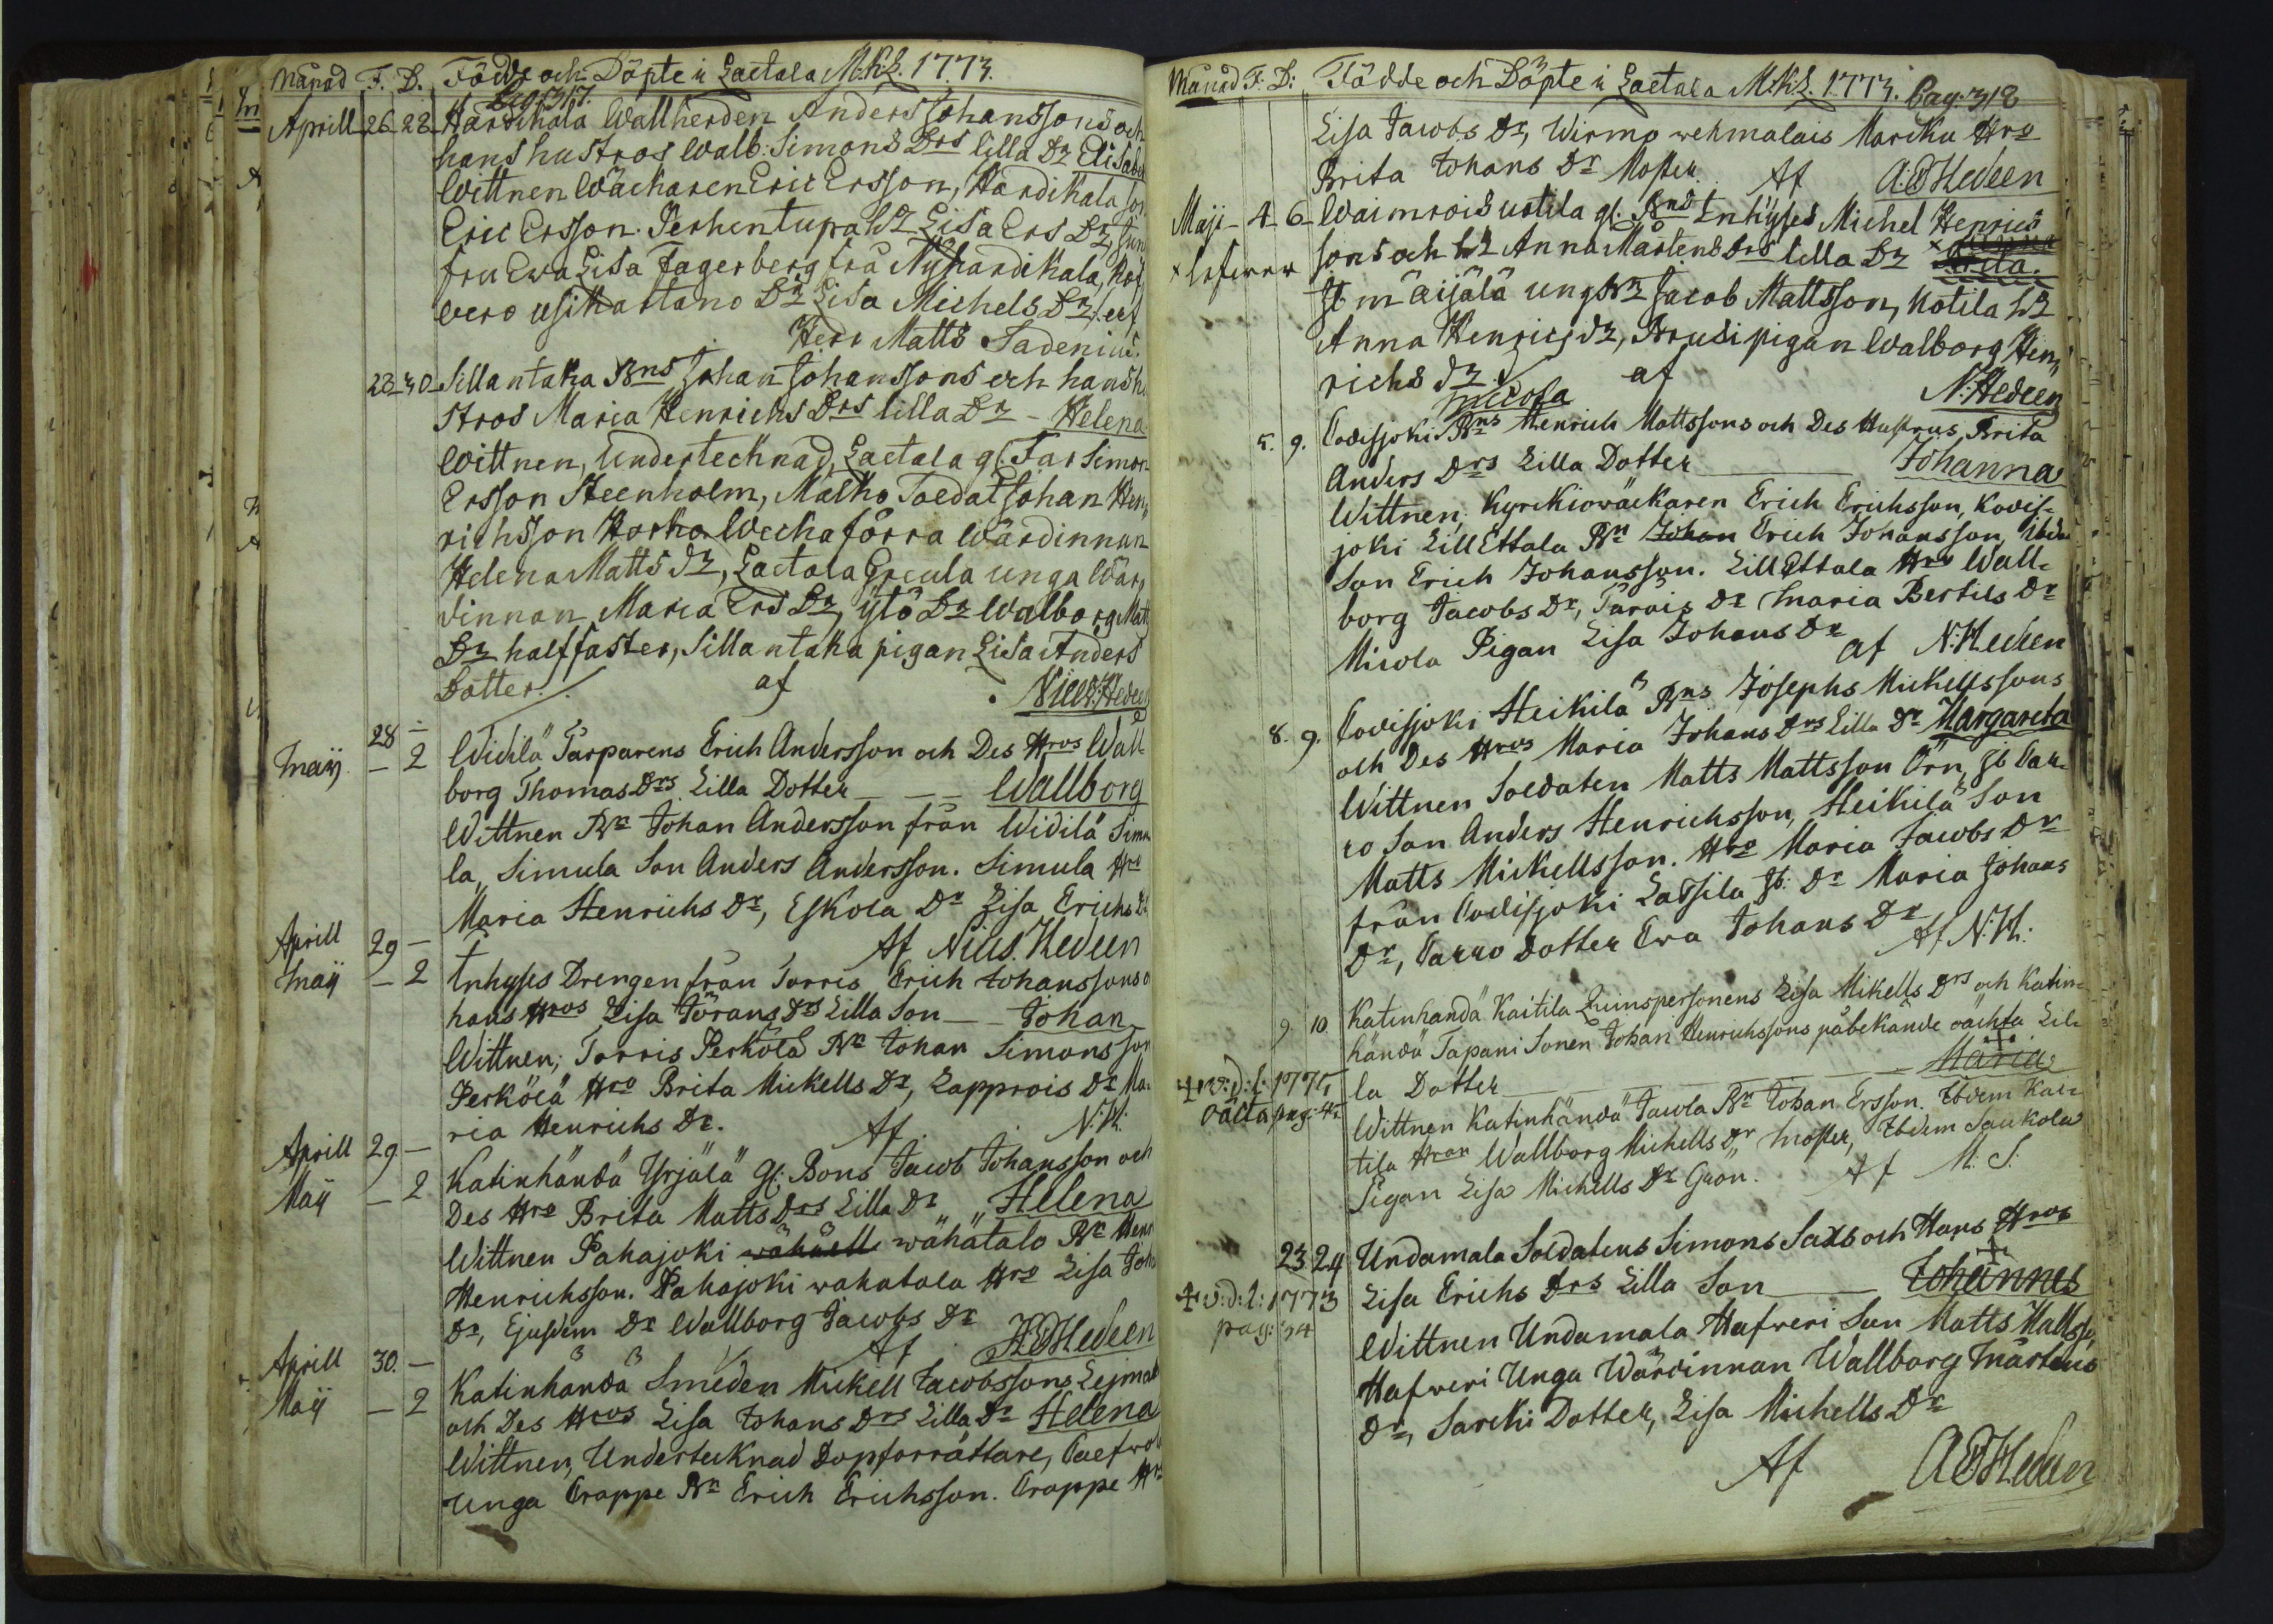 Månad F. D. Födde och Döpte i Laetala M:k:L. 1773.
Pag. 317.
Aprill 26 28 Hardikala Wallherden Anders Johanssons och
hans hustros Walb: Simons Drs lilla Dr Elisabet
Wittnen Wäckaren Eric Ersson, Hardikala
Eric Ersson. Perhentupa Lisa Ers Dr,
fru Ewa Lisa Fagerberg frå Nyhardikala,
vero usikartano Dr Lisa Michels Dr
Herr Matts Sadenius.
28 30 Sillantaka Bns Johan Johanssons och hans hu
stros Maria Henrichs Drs lilla Dr - Helena
Wittnen, Undertecknad, Laetala gl. Far Simon
Ersson Steenholm, Malko Soldat Johan Hen,,
richsson Horko Wecka förra Wärdinnan
Helena Matts dr, Laetala Grecula unga Wär,,
dinnan Maria Ers Dr, ylö Dr Walborg Matts
Dr halffaster, Sillantaka pigan Lisa Anders
Dotter. af Nills: Hedeen
28 -
Maij - 2 Widilä Torparens Erich Andersson och Des Hros Wall-
borg Thomas Drs Lilla Dotter - - - Wallborg
Wittnen Bn Johan Andersson från Widilä Simu
la, Simula Son Anders Andersson. Simula Hro
Maria Henrichs Dr, Eskola Dr Lisa Erichs Dr
Af Nills. Hedeen
Aprill 29 -
Maij - 2 Inhyses Drengen från Torris Erich Johanssons o
hans Hros Lisa Jörans Drs Lilla Son - - Johan
Wittnen, Torris Perkölä Bn Johan Simonsson
Perkölä Hro Brita Mickells Dr, Lapprois Dr Ma-
ria Henrichs Dr. Af N:H:
Aprill 29 -
Maij - 2 Katinhändä Yrjälä gl: Bons Jacob Johansson och
Des Hro Brita Matts Drs Lilla Dr „ Helena
Wittnen Pahajoki wähätalo Bn Henr
Henrichsson. Pahajoki wahatala Hro Lisa Joh
Dr, Ejusdem Dr Wallborg Jacobs Dr
Af Hedeen
Aprill 30. -
Maij - 2 Katinhändä Smeden Mickell Jacobssons Lejman
och Des Hros Lisa Johans Drs Lilla Dr Helena
Wittnen, Undertecknad Dopförrättare,
Unga Crappe Bn Erich Erichsson. Crappe Hro
Månad F. D: Födde och Döpte i Laetala M:k:L. 1773. Pag. 318
Lisa Jacobs Dr, Wirmo wehmalais Marcku Hro
Brita Johans Dr Moster. Af A:Hedeen
Maji - 4 6 - Waimrois ustila gl. Bns Inhyses Michel Henrics
sons och Anna Mårtens Drs lilla Dr Brita.
Jb mäijälä ung Bn Jacob Mattsson, Kotila
Anna Henrics dr, Brusi pigan Walborg Hen,,
richs dr. af N:Hedeen
Micola
5. 9. Codisjoki Bns Henrich Mattssons och Des Hustrus, Brita
Anders Drs Lilla Dotter Johanna
Wittnen, Kyrckiowäckaren Erich Erichsson, Kodis-
joki Lill Ettala Bn Johan Erich Johansson, Ibdm
Son Erich Johansson. Lill Ettala Hro Wall-
borg Jacobs Dr, Dr Maria Bertils Dr
Micola Pigan Lisa Johans Dr af N:Hedeen
8. 9. Codisjoki Heikilä Bns Josephs Mickellssons
och Des Hros Maria Johans Drs Lilla Dr Margareta
Wittnen Soldaten Matts Mattsson Örn, Jb Tar-
ro Son Anders Henrichsson, Heikilä Son
Matts Mickellsson. Hro Maria Jacobs Dr
från Codisjoki Lassila Jb: Dr Maria Johans
Dr, Tarro Dotter Eva Johans Dr Af N:H:
9. 10. Katinhändä Kaitila Qwinspersonens Lisa Mikells Drs och Katin-
händä Tapani Sonen Johan Henrichssons påbekände oächta Lil-
la Dotter Maria
+ v:d:l: 1775 oäcta pag: 45
Wittnen Katinhändä Jawla Bn Johan Ersson. Ibdem Kai-
tila Hron Wallborg Mickells Dr, Moster, Ibdem Saukola
Pigan Lisa Mickells Dr Gaon. Af M. S.
23 24 Undamala Soldatens Simons Saxs och Hans Hros
Lisa Erichs Drs Lilla Son Johannes
+ v:d:l: 1773 pag: 34
Wittnen Undamala Hafweri Son Matts Matsso,
Hafweri Unga Wärdinnan Wallborg Mårtens
Dr, Sarcki Dotter, Lisa Michells Dr
Af A Hedeen